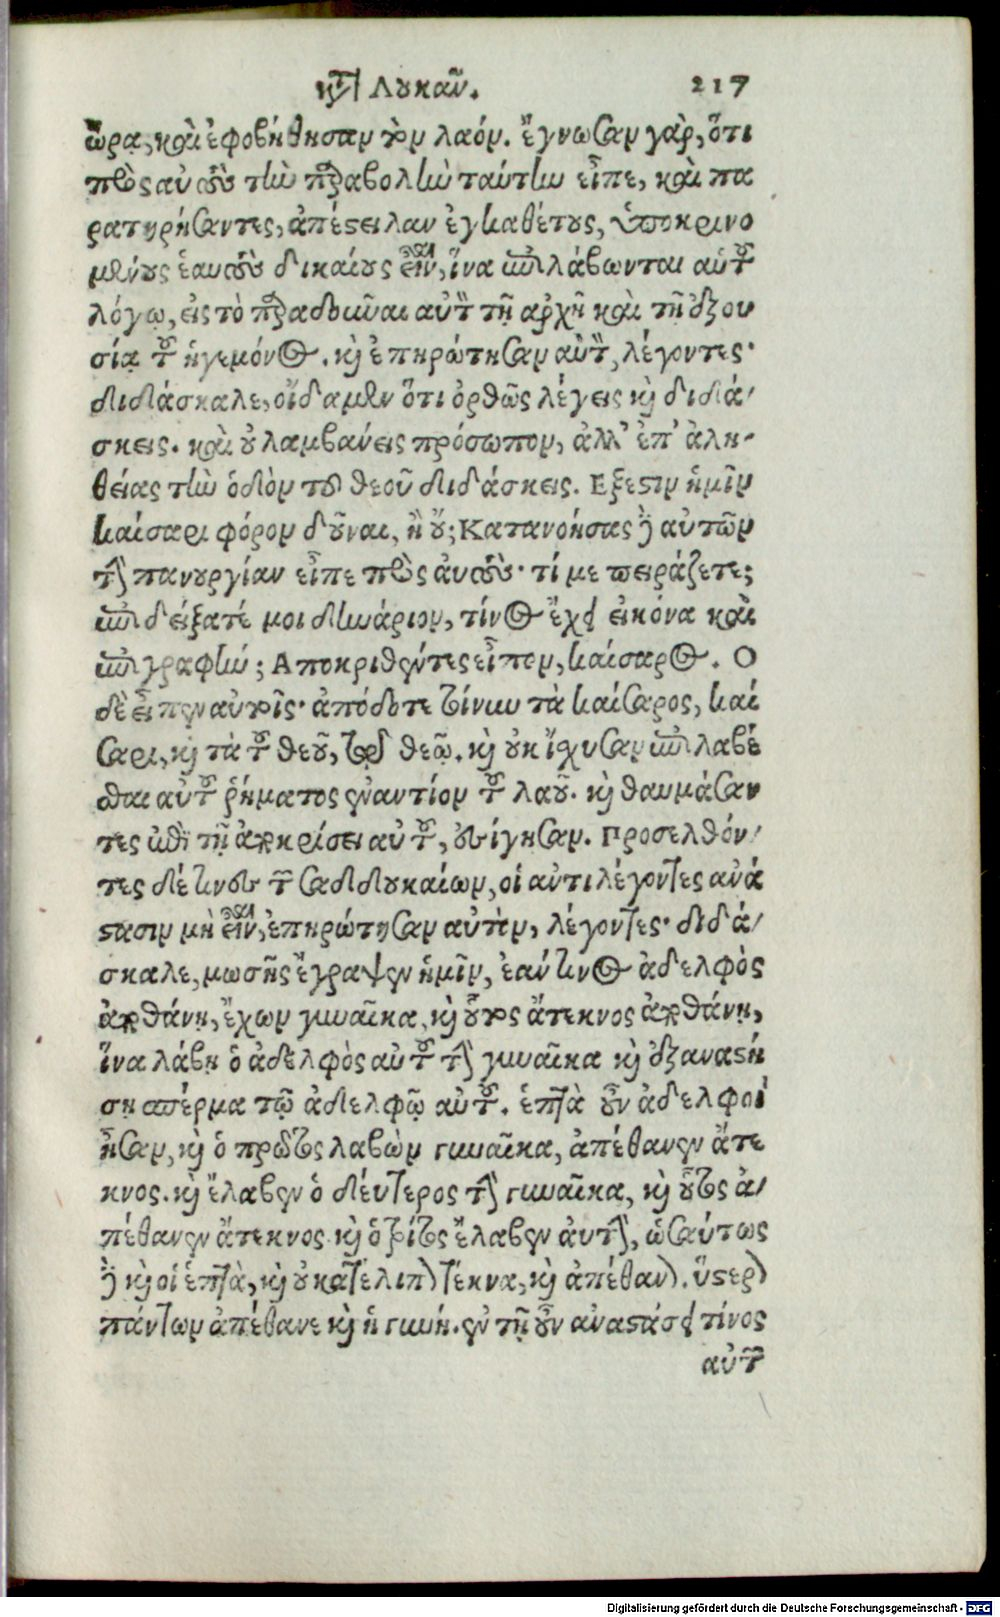 κτ̃ Λουκᾶν. 217
ὥρα, καὶ ἐφοβήθησαν τὸν λαόν. ἔγνωσαν γὰρ, ὅτι
πρὸς αὐτοὺς τὴν παραβολὴν ταύτην εἶπε, καὶ πα
ρατηρήσαντες, ἀπέστειλαν ἐγκαθέτους, ὑποκρινο
μένους ἑαυτοὺς δικαίους εἶναι, ἵνα ἐπιλάβωνται αὐτοῦ
λόγῳ, εἰς τὸ παραδοῦναι αὐτὸν τῇ ἀρχῇ καὶ τῇ ἐξου
σίᾳ τοῦ ἡγεμόνος. καὶ ἐπηρώτησαν αὐτὸν, λέγοντες·
διδάσκαλε, οἴδαμεν ὅτι ὀρθῶς λέγεις καὶ διδά/
σκεις. καὶ οὐ λαμβάνεις πρόσωπον, ἀλλ' ἐπ' ἀλη-
θείας τὴν ὁδὸν τοῦ θεοῦ διδάσκεις. Εξεστιν ἡμῖν
καίσαρι φόρον δοῦναι, ἢ οὔ; Κατανοήσας δὲ αὐτῶν
τὴν πανουργίαν εἶπε πρὸς ἀυτοὺς· τί με πειράζετε;
ἐπιδείξατέ μοι δηνάριον, τίνος ἔχει εἰκόνα καὶ
ἐπιγραφήν; Αποκριθέντες εἶπον, καίσαρος. Ο
δὲ εἶπεν αὐτοῖς· ἀπόδοτε τοίνυν τὰ καίσαρος, καί
σαρι, καὶ τὰ τοῦ θεοῦ, τῷ θεῷ. καὶ οὐκ ἴσχυσαν ἐπιλαβέ
σθαι αὐτοῦ ῥήματος ἐναντίον τοῦ λαοῦ. καὶ θαυμάσαν
τες ἐπὶ τῇ ἀποκρίσει αὐτοῦ, ἐσίγησαν. Προσελθόν/
τες δέ τινες τῶν Σαδδουκαίων, οἱ αντιλέγοντες ανά
στασιν μὴ εἶναι, ἐπηρώτησαν αὐτὸν, λέγοντες· διδά/
σκαλε, μωσῆς ἔγραψεν ἡμῖν, ἐάν τινος ἀδελφὸς
ἀποθάνῃ, ἔχων γυναῖκα, καὶ οὗτος ἄτεκνος ἀποθάνῃ,
ἵνα λάβῃ ὁ ἀδελφὸς αὐτοῦ τὴν γυναῖκα καὶ ἐξαναστή
σῃ σπέρμα τῷ ἀδελφῷ αὐτοῦ. ἑπτὰ οὖν ἀδελφοὶ
ἦσαν, καὶ ὁ πρῶτος λαβὼν γυναῖκα, ἀπέθανεν ἄτε
κνος. καὶ ἔλαβεν ὁ δεύτερος τὴν γυναῖκα, καὶ οὗτος ἀ/
πέθανεν ἄτεκνος καὶ ὁ τρίτος ἔλαβεν ἀυτὴν, ὡσαύτως
δὲ καὶ οἱ ἑπτὰ, καὶ οὐ κατέλιπον τέκνα, καὶ ἀπέθανον. ὕστερον
πάντων ἀπέθανε καὶ ἡ γυνή. ἐν τῇ οὖν αναστάσει τίνος
αὐτῶν
Digitalisierung gefördert durch die Deutsche Forschungsgemeinschaft - DFG